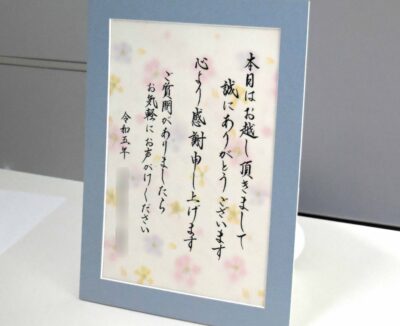 本日はお越し頂きまして
誠にありがとうございます
心より感謝申し上げます
ご質問がありましたら
お気軽にお声がけください
令和五年